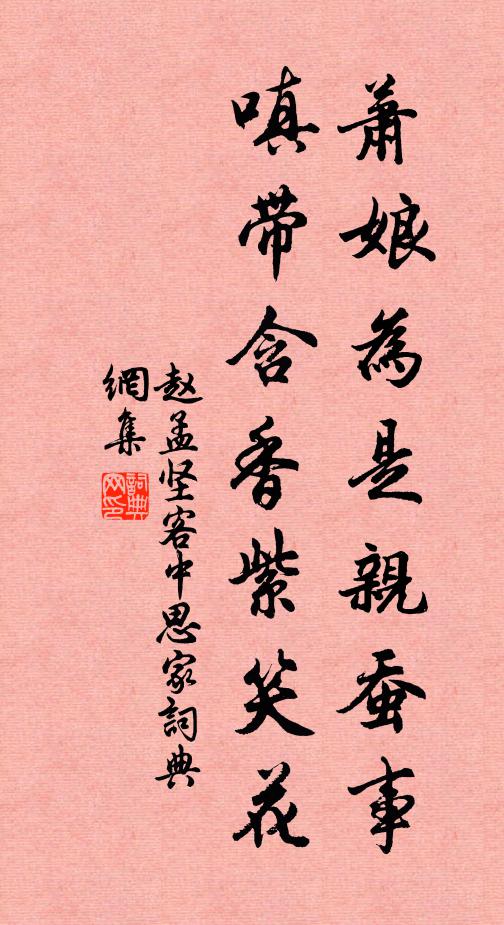 萧娘為是親蚕事
嗔带含香紫笑花
赵孟坚客中思家詞典
網集
詞典
网印